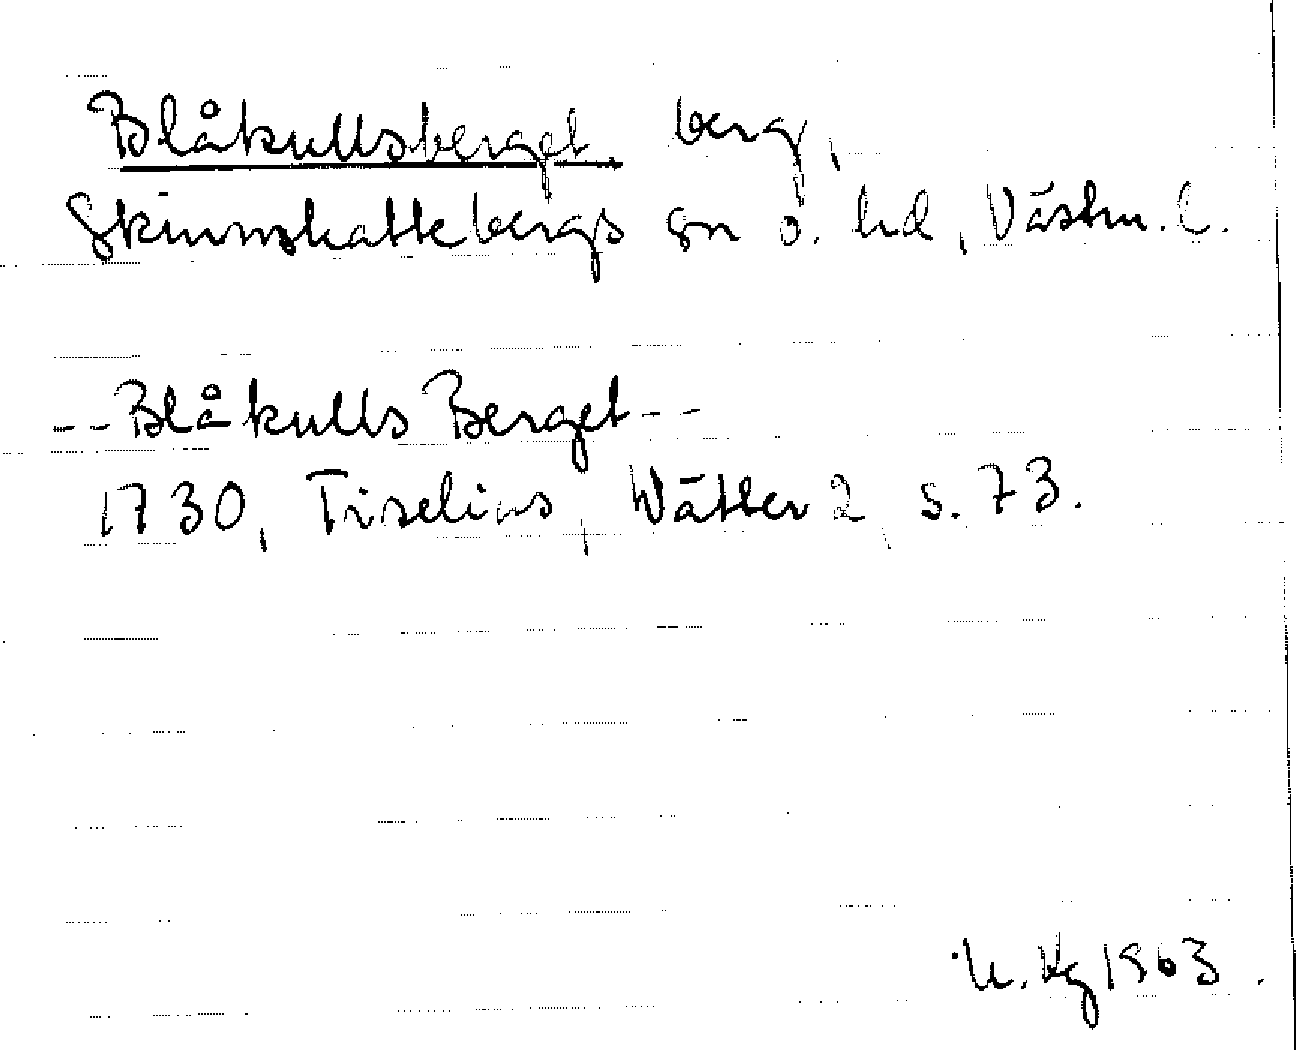 Blåkullsberget berg,
Skinnskattebergs sn o. hd, Västm. l.
--Blåkulls Berget--
1730, Tiselius, Wätter 2, s. 73.
U. Kg 1963.